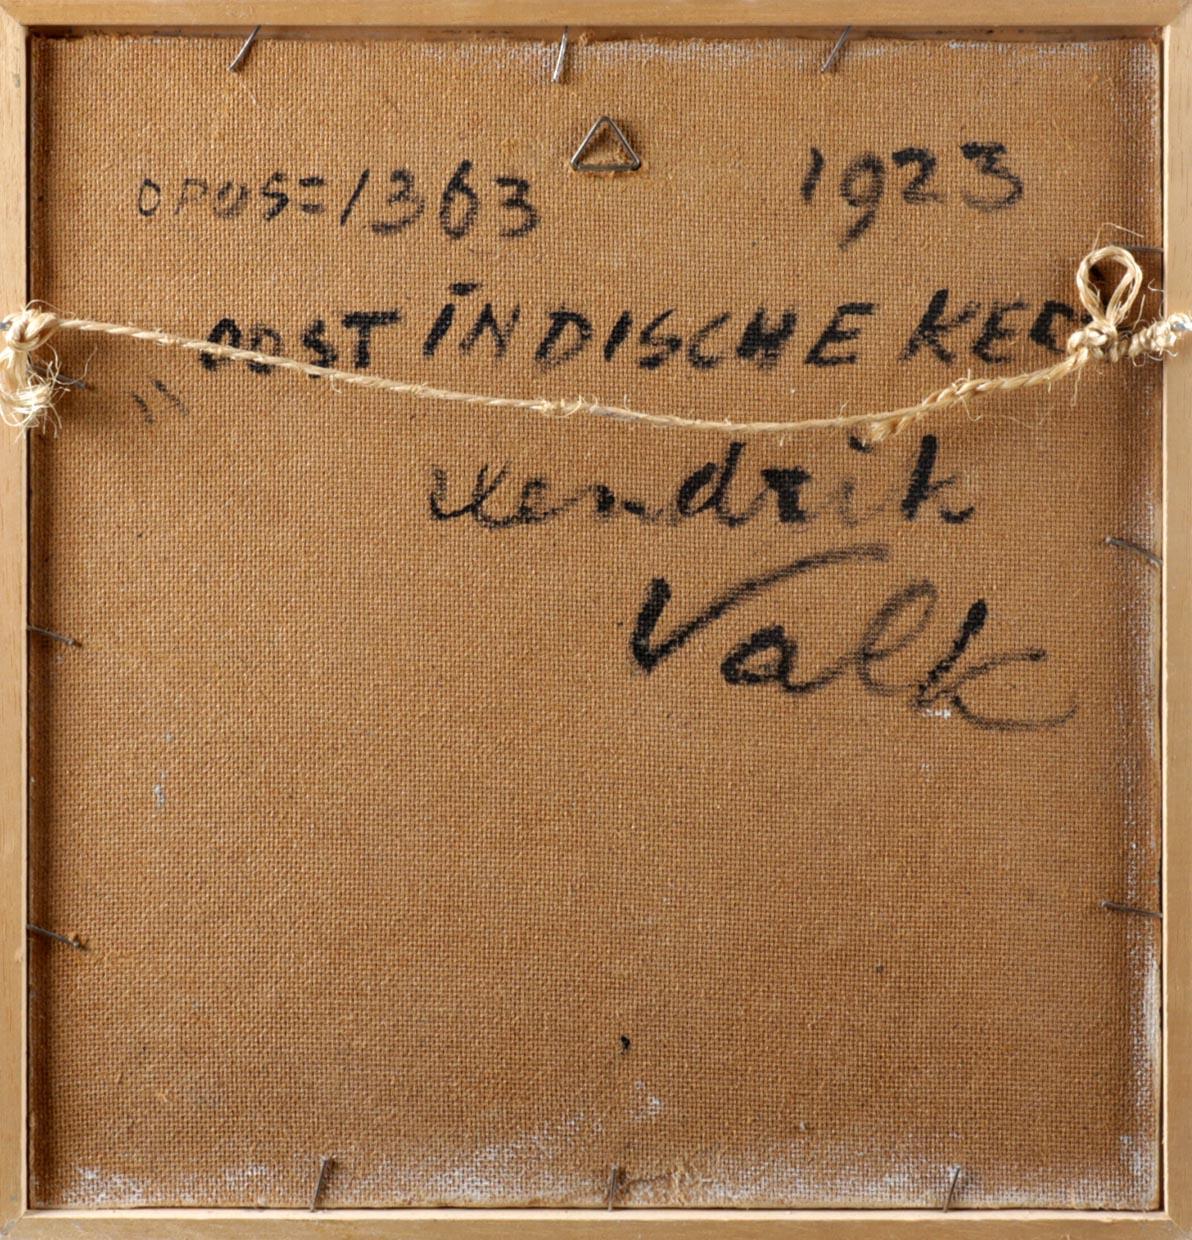 OPUS=1363 1923
„OOST INDISCHE KERS
Hendrik
Valk